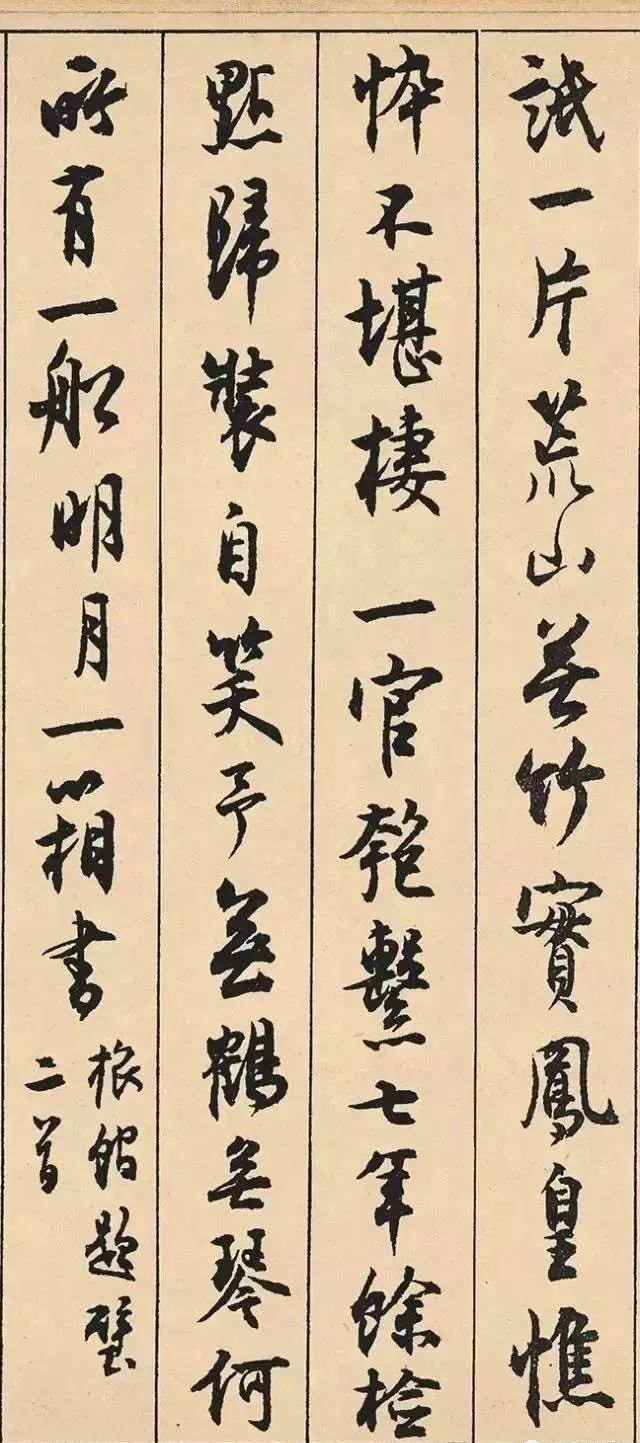 識一片荒山無竹實鳳皇憔
悴不堪棲一官匏繫七年餘檢
點歸裝自笑予無鶴無琴何
所有一船明月一箱書
旅館題壁
二首